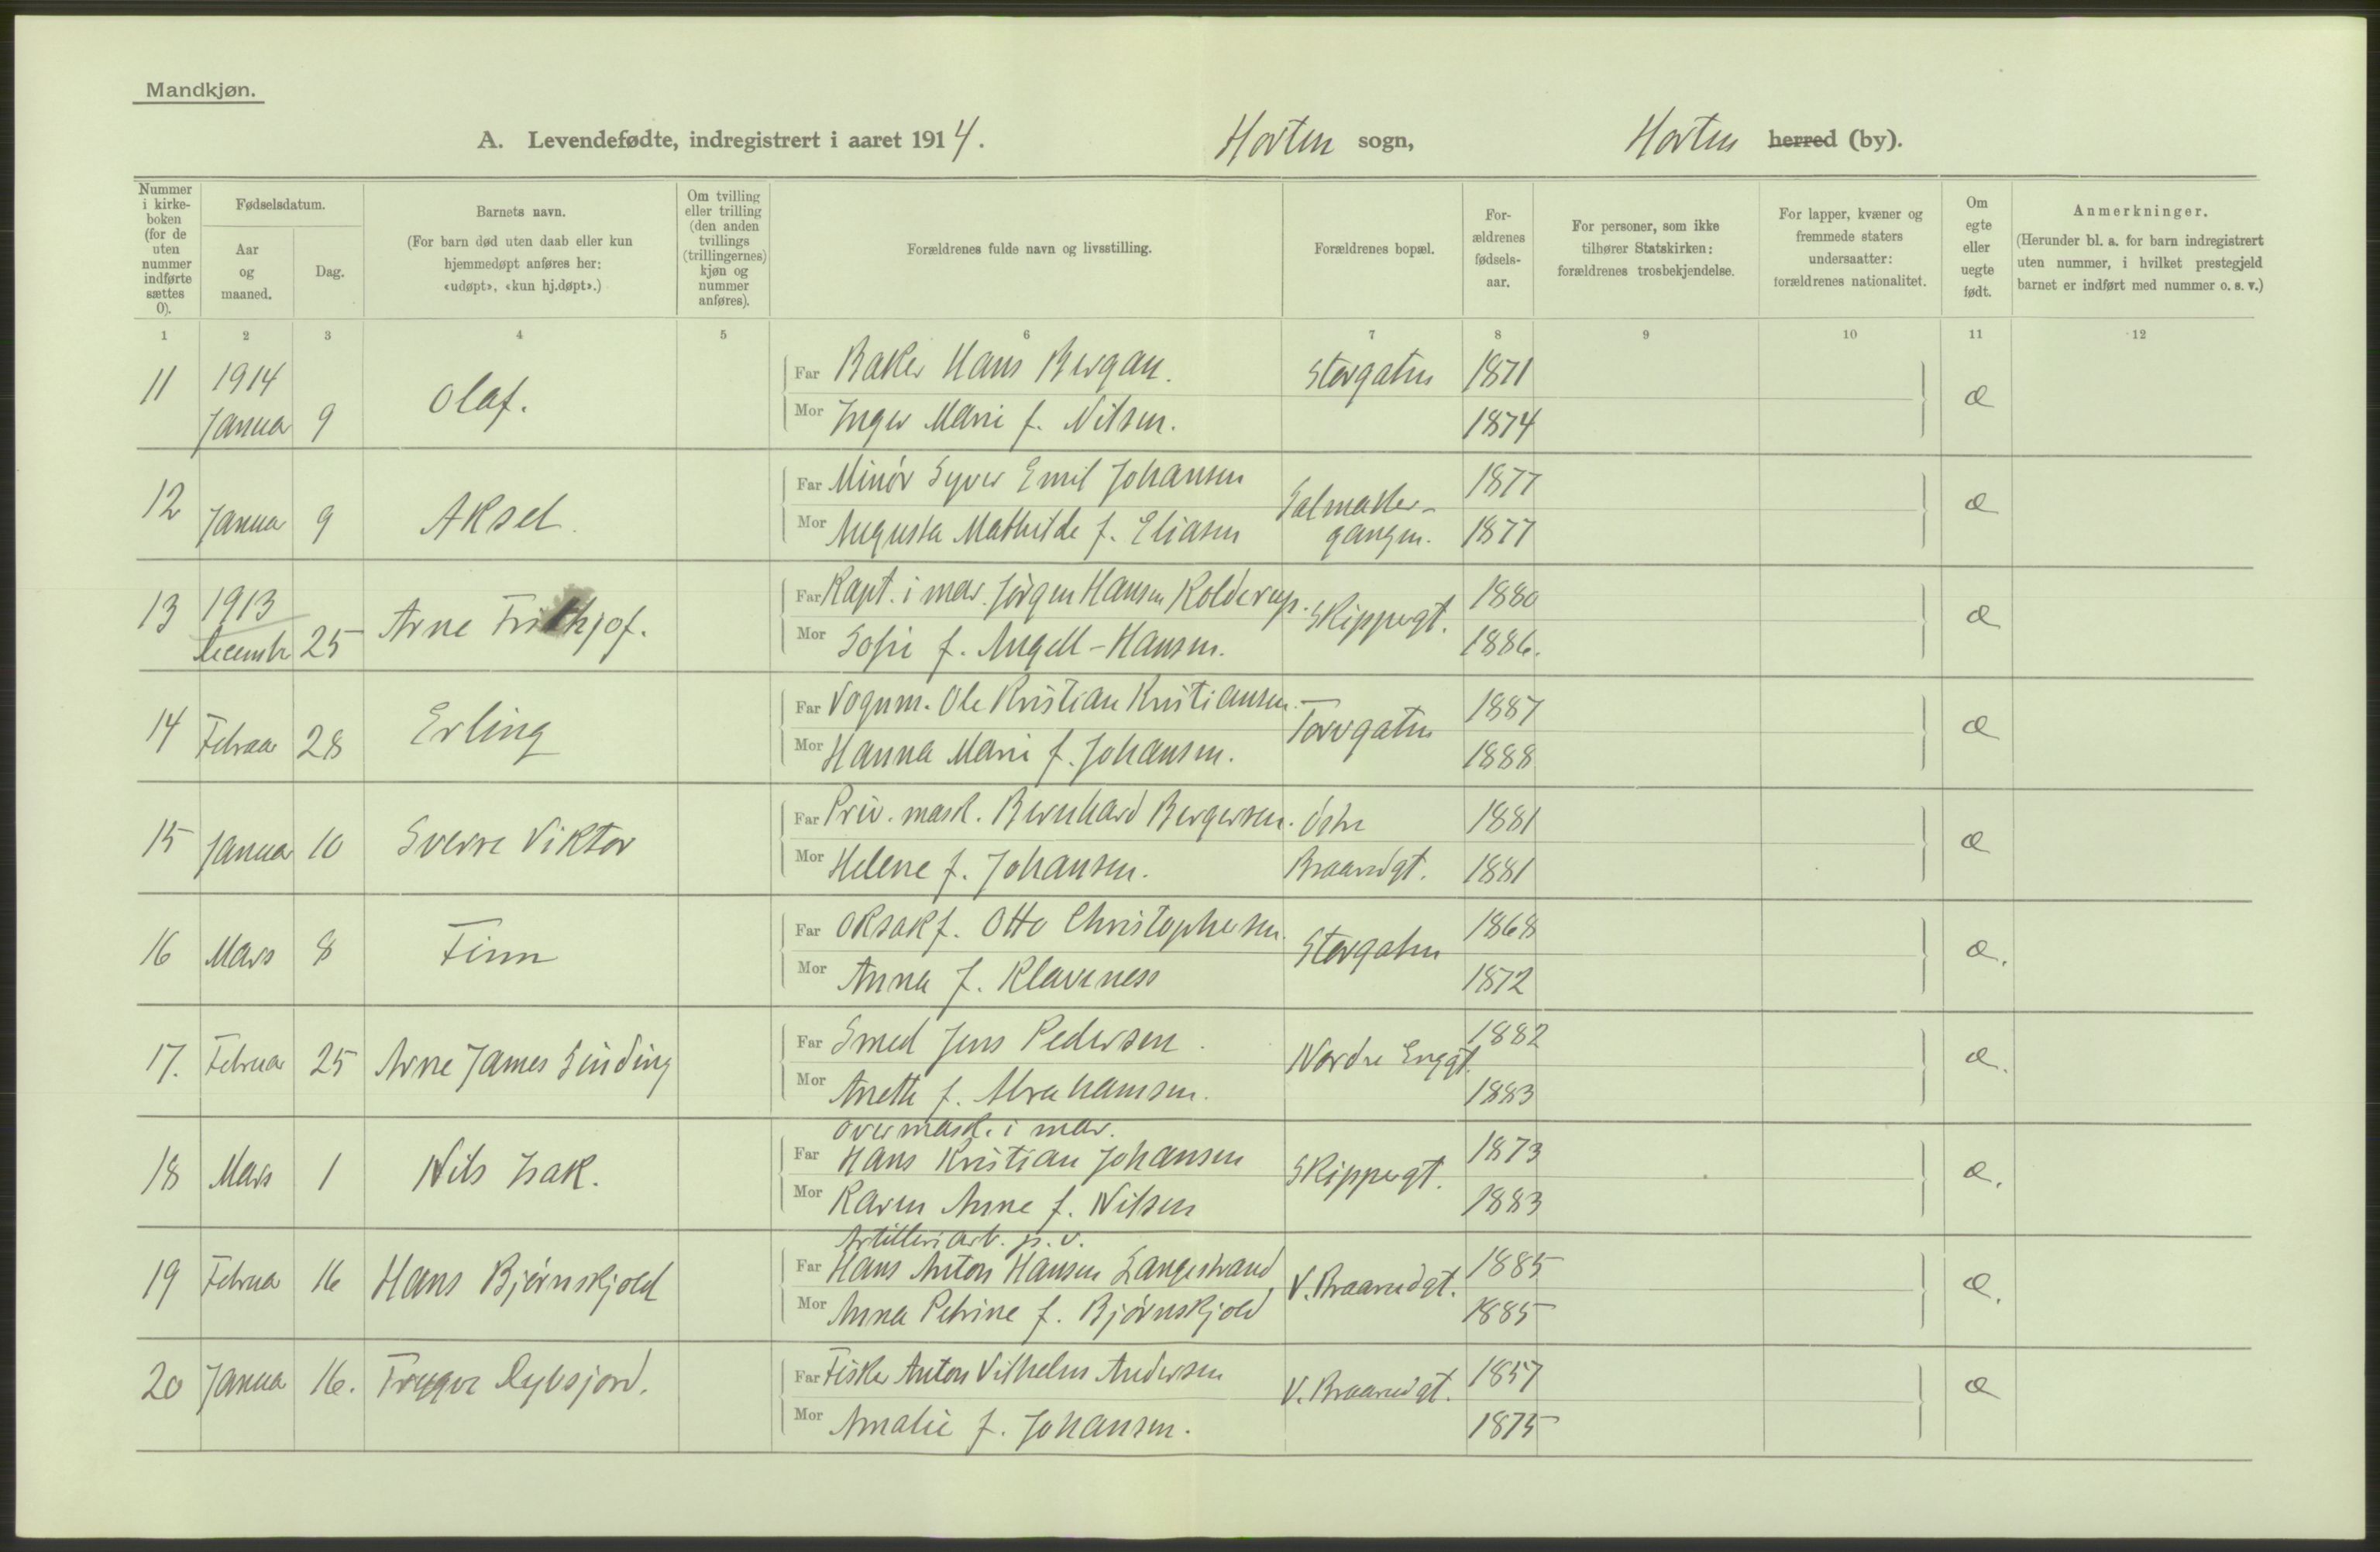 Mandkjøn.
A. Levendefødte, indregistrert i aaret 1914. Horten sogn, Horten herred (by).
Nummer i kirke-boken (for de uten nummer indførte sættes 0).
Fødselsdatum.
Aar og maaned.
Dag.
Barnets navn.
(For barn død uten daab eller kun hjemmedøpt anføres her: «udøpt», «kun hj.døpt».)
Om tvilling eller trilling (den anden tvillings (trillingernes) kjøn og nummer anføres).
Forældrenes fulde navn og livsstilling.
Forældrenes bopæl.
For-ældrenes fødsels-aar.
For personer, som ikke tilhører Statskirken: forældrenes trosbekjendelse.
For lapper, kvæner og fremmede staters undersaatter: forældrenes nationalitet.
Om egte eller uegte født.
Anmerkninger.
(Herunder bl. a. for barn indregistrert uten nummer, i hvilket prestegjeld barnet er indført med nummer o. s. v.)
1 2 3 4 5 6 7 8 9 10 11 12
11 1914 Januar 9 Olaf. Far Baker Hans Bergan. Storgaten 1871 æ
Mor Inger Marie f. Nilsen. 1874
12 Januar 9 Aksel. Far Minör Syver Emil Johansen Salmaker- 1877 æ
Mor Augusta Mathilde f. Eliasen gangen. 1877
13 1913 Decembr 25 Arne Frithjof. Far Kapt. i mar. Jörgen Hansen Kolderup. Skippergt. 1880 æ
Mor Sofie f. Angell-Hansen. 1886.
14 Februar 28 Erling Far Vognm. Ole Kristian Kristiansen. Torvgaten 1887 æ
Mor Hanna Marie f. Johansen. 1888
15 Januar 10 Sverre Viktor Far Priv. mask. Bernhard Bergersen. östre 1881 æ
Mor Helene f. Johansen. Braarudgt. 1881
16 Mars 8 Finn Far Oksakf. Otto Christophersen. Storgaten 1868 æ.
Mor Anna f. Klaveness 1872
17. Februar 25 Arne James Sinding Far Smed Jens Pedersen. Nordre Enggt. 1882 æ.
Mor Anette f. Abrahamsen. 1883
overmask. i mar.
18 Mars 1 Nils Isak. Far Hans Kristian Johansen Skippergt. 1873 æ.
Mor Karen Anne f. Nilsen 1883
Artilleriarb. p. v.
19 Februar 16 Hans Bjørnskjold Far Hans Anton Hansen Langestrand V. Braarudgt. 1885 æ.
Mor Anna Petrine f. Bjørnskjold 1885
20 Januar 16. Trygve Far Fisker Anton Vilhelm Andersen V. Braarudgt. 1857 æ
Mor Amalie f. Johansen. 1875